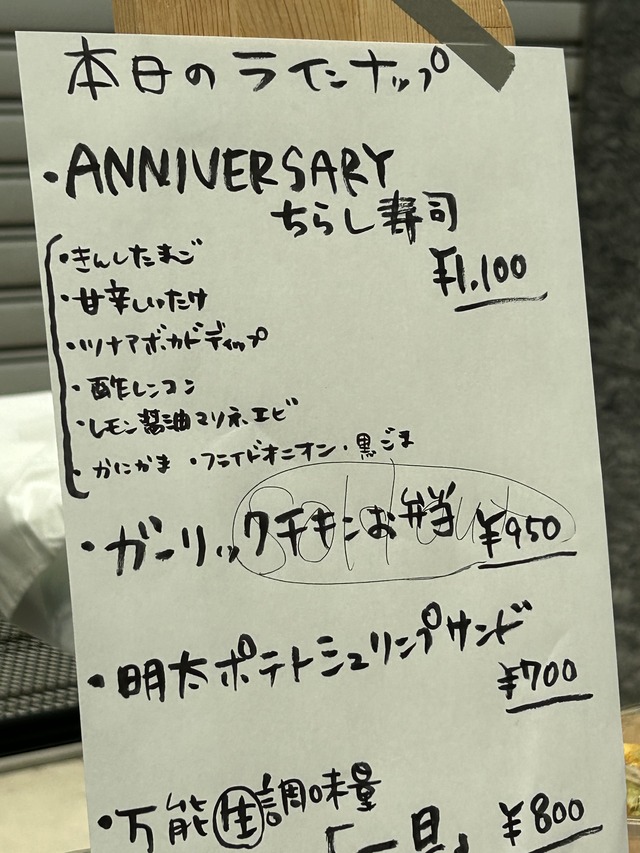 本日のラインナップ
・ANNIVERSARY
ちらし寿司
¥1,100
・きんしたまご
・甘辛しいたけ
・ツナアボカドディップ
・酢レンコン
・レモン醤油マリネエビ
・かにかま ・フライドオニオン・黒ごま
・ガーリックチキンお弁当 ¥950
Sold out
・明太ポテトシュリンプサンド
¥700
・万能生調味量
¥800